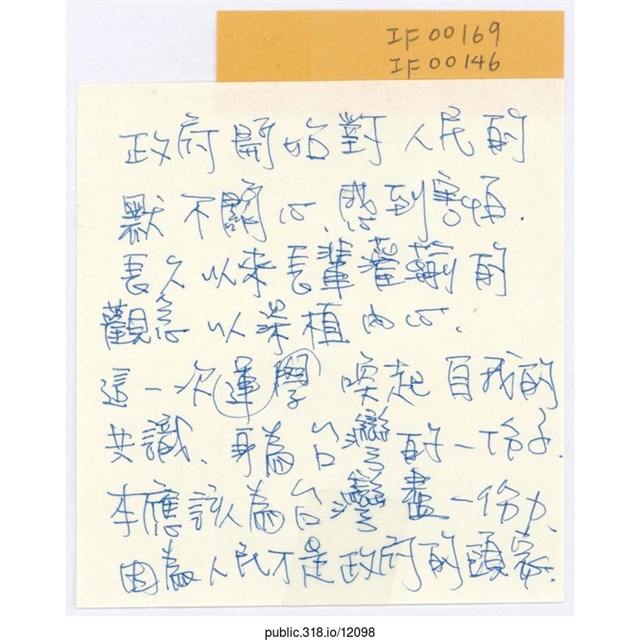 IF00169
IF00146
政府開始對人民的
默不關心、感到害怕.
長久以來長輩灌輸的
觀念以深植內心.
這一次運學喚起自我的
共識、身為台灣的一份子.
本應該為台灣盡一份力,
因為人民才是政府的頭家.
public.318.io/12098